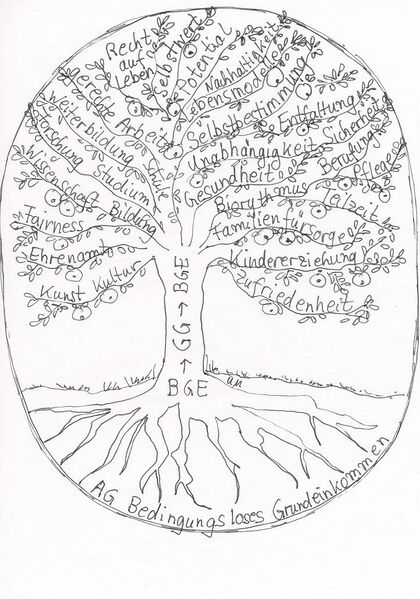 Recht
auf
Leben
Selbstwert
Potential
Nachhaltigkeit
Lebensmodelle
Selbstbestimmung
gerechte Arbeit
Weiterbildung
Forschung
Studium
Schule
Wissenschaft
Bildung
Fairness
Ehrenamt
Kunst Kultur
Entfaltung
Unabhängigkeit
Sicherheit
Gesundheit
Berufung
Biorythmus
Pflege
Teilzeit
Familienfürsorge
Kindererziehung
Zufriedenheit
BGE
↑
GG
↑
BGE
AG Bedingungsloses Grundeinkommen